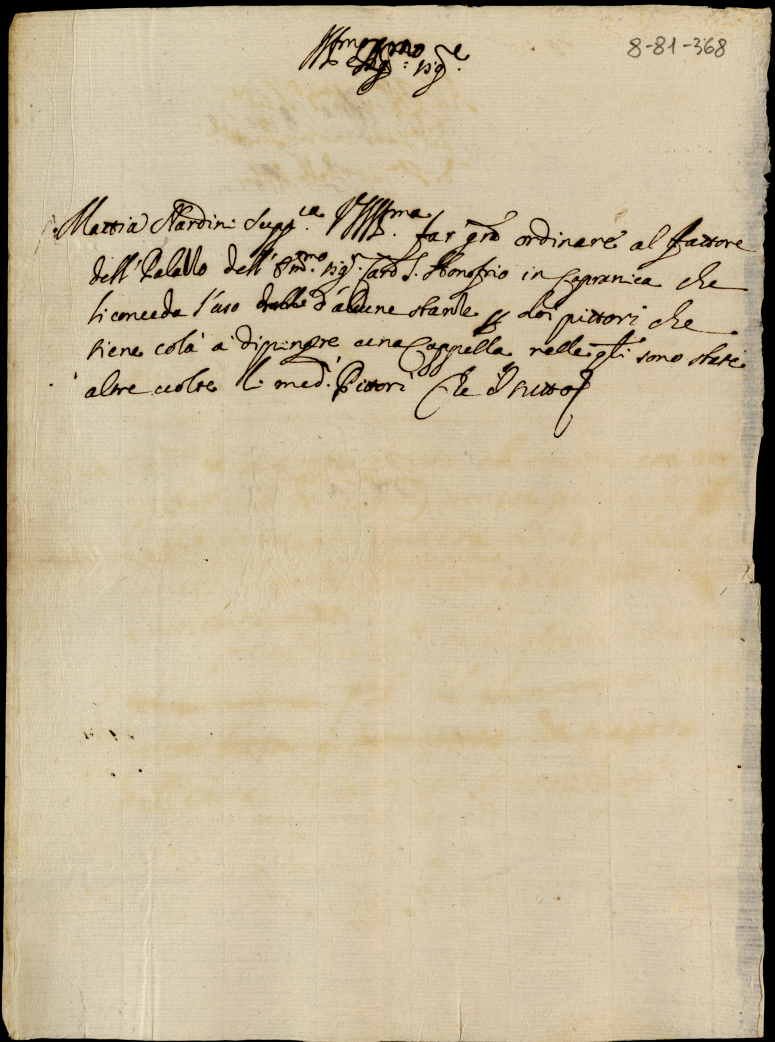 8-81-368
Ill.mo et R.mo
Sig.r sig.re
Mattia Nardini supp.ca V.S.Ill.ma far gra ordinare al fattore
dell'Palazzo dell'Em.mo sig.r Card S. Honofrio in Capranica che
li conceda l'uso d'alcune stanze p doi pittori che
tiene colà a dipingere una Cappella nelle qli sono stati
altre uolte li med.i Pittori Che il tutto